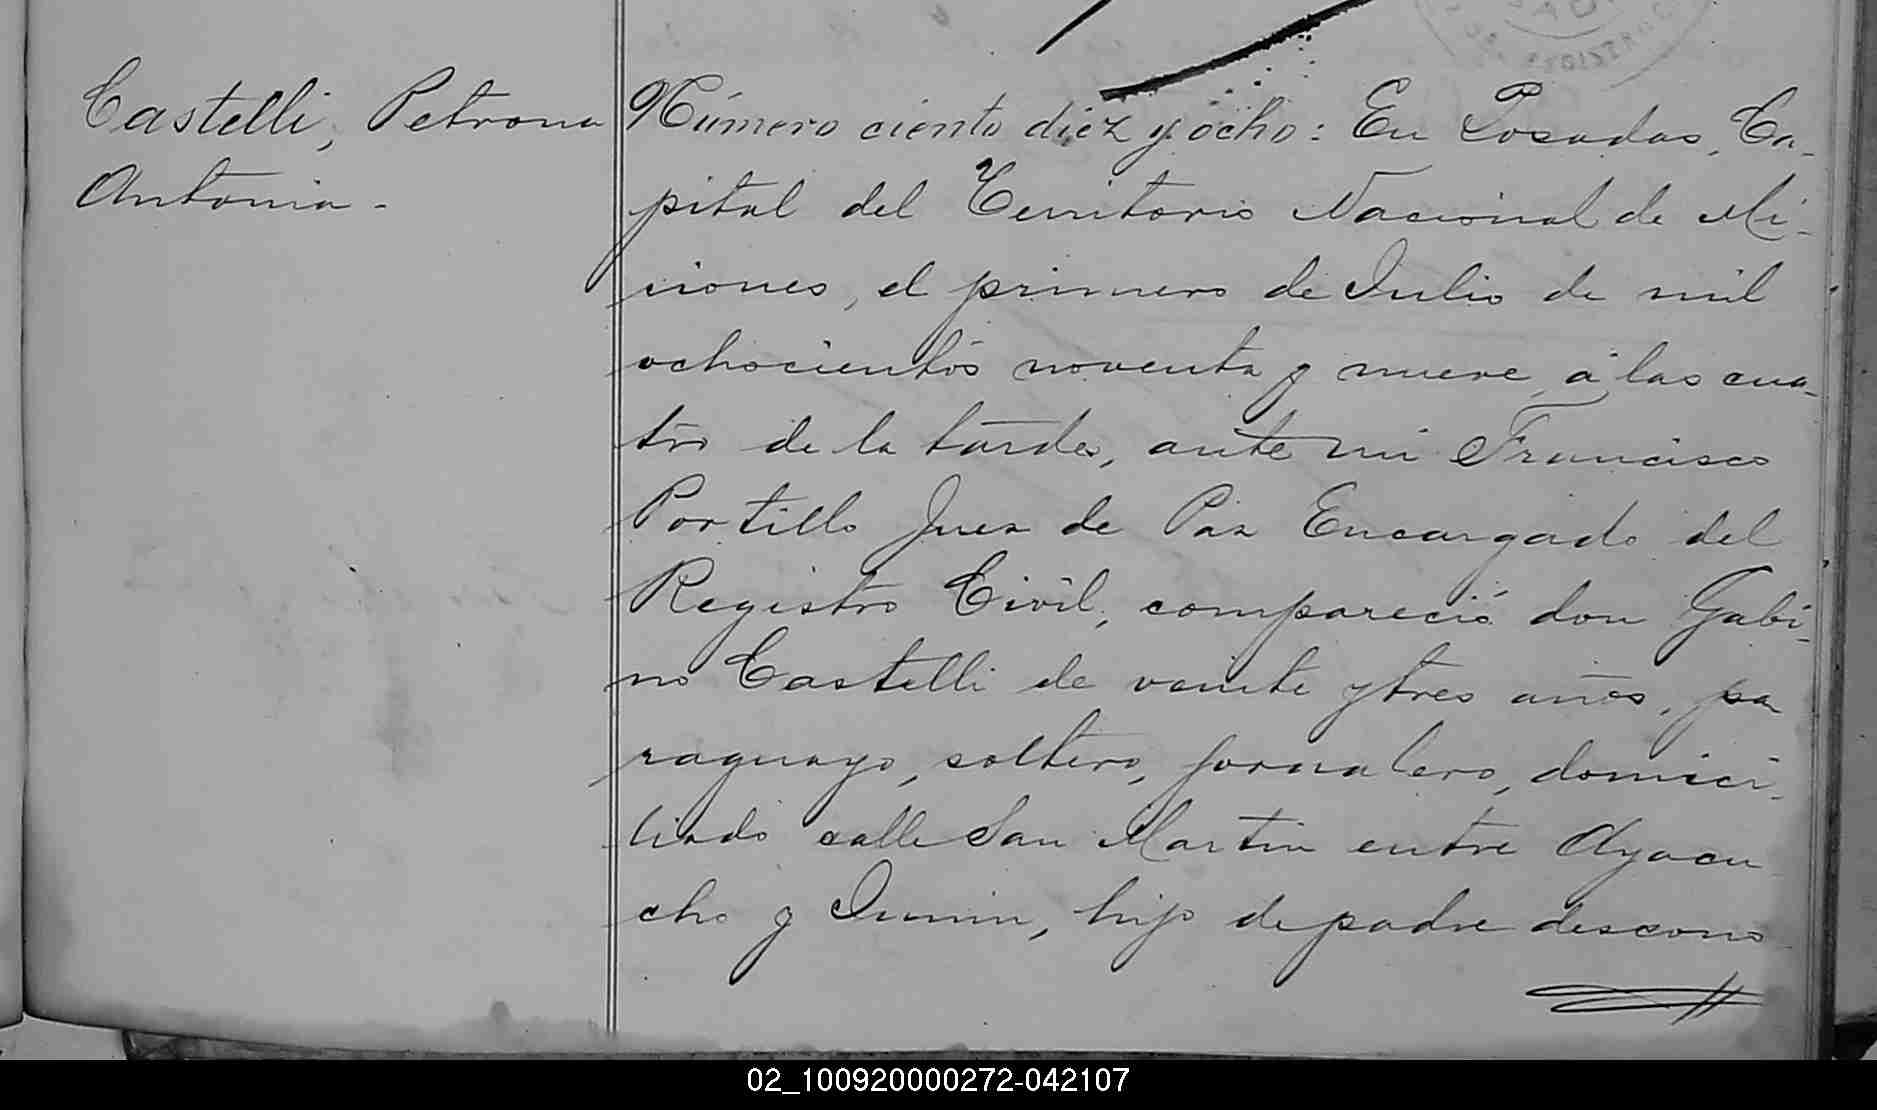 Castelli, Petrona
Antonia -
Número ciento diez y ocho: En Posadas, Ca-
pital del Territorio Nacional de Mi-
siones, el primero de Julio de mil
ochocientos noventa y nueve, á las cua-
tro de la tarde, ante mi Francisco
Portillo Juez de Paz Encargado del
Registro Civil, compareció don Gabi-
no Castelli de veinte y tres años, pa
raguayo, soltero, jornalero, domici-
liado calle San Martin entre Ayacu
cho y Junin, hijo de padre descono
02_100920000272-042107